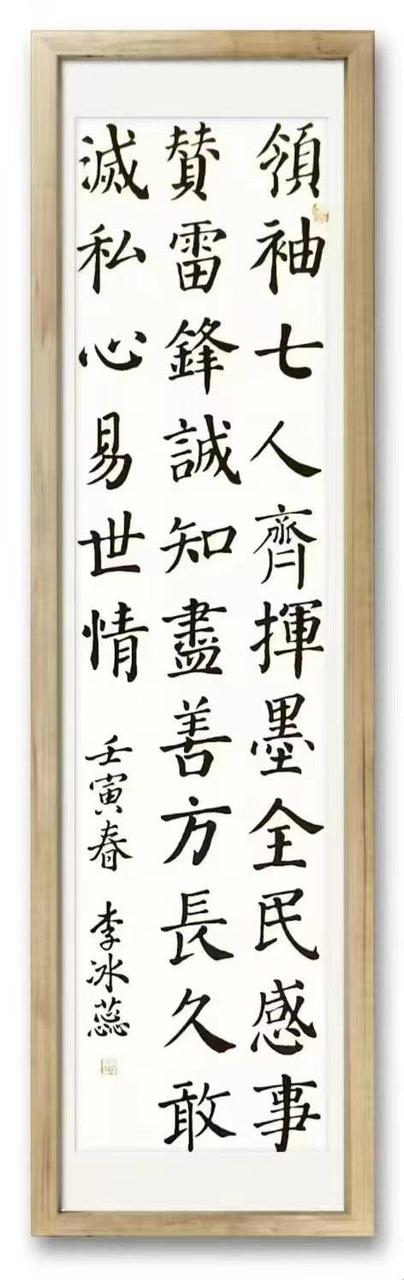 領袖七人齊揮墨全民感事
贊雷鋒誠知盡善方長久敢
滅私心易世情
壬寅春 李冰蕊